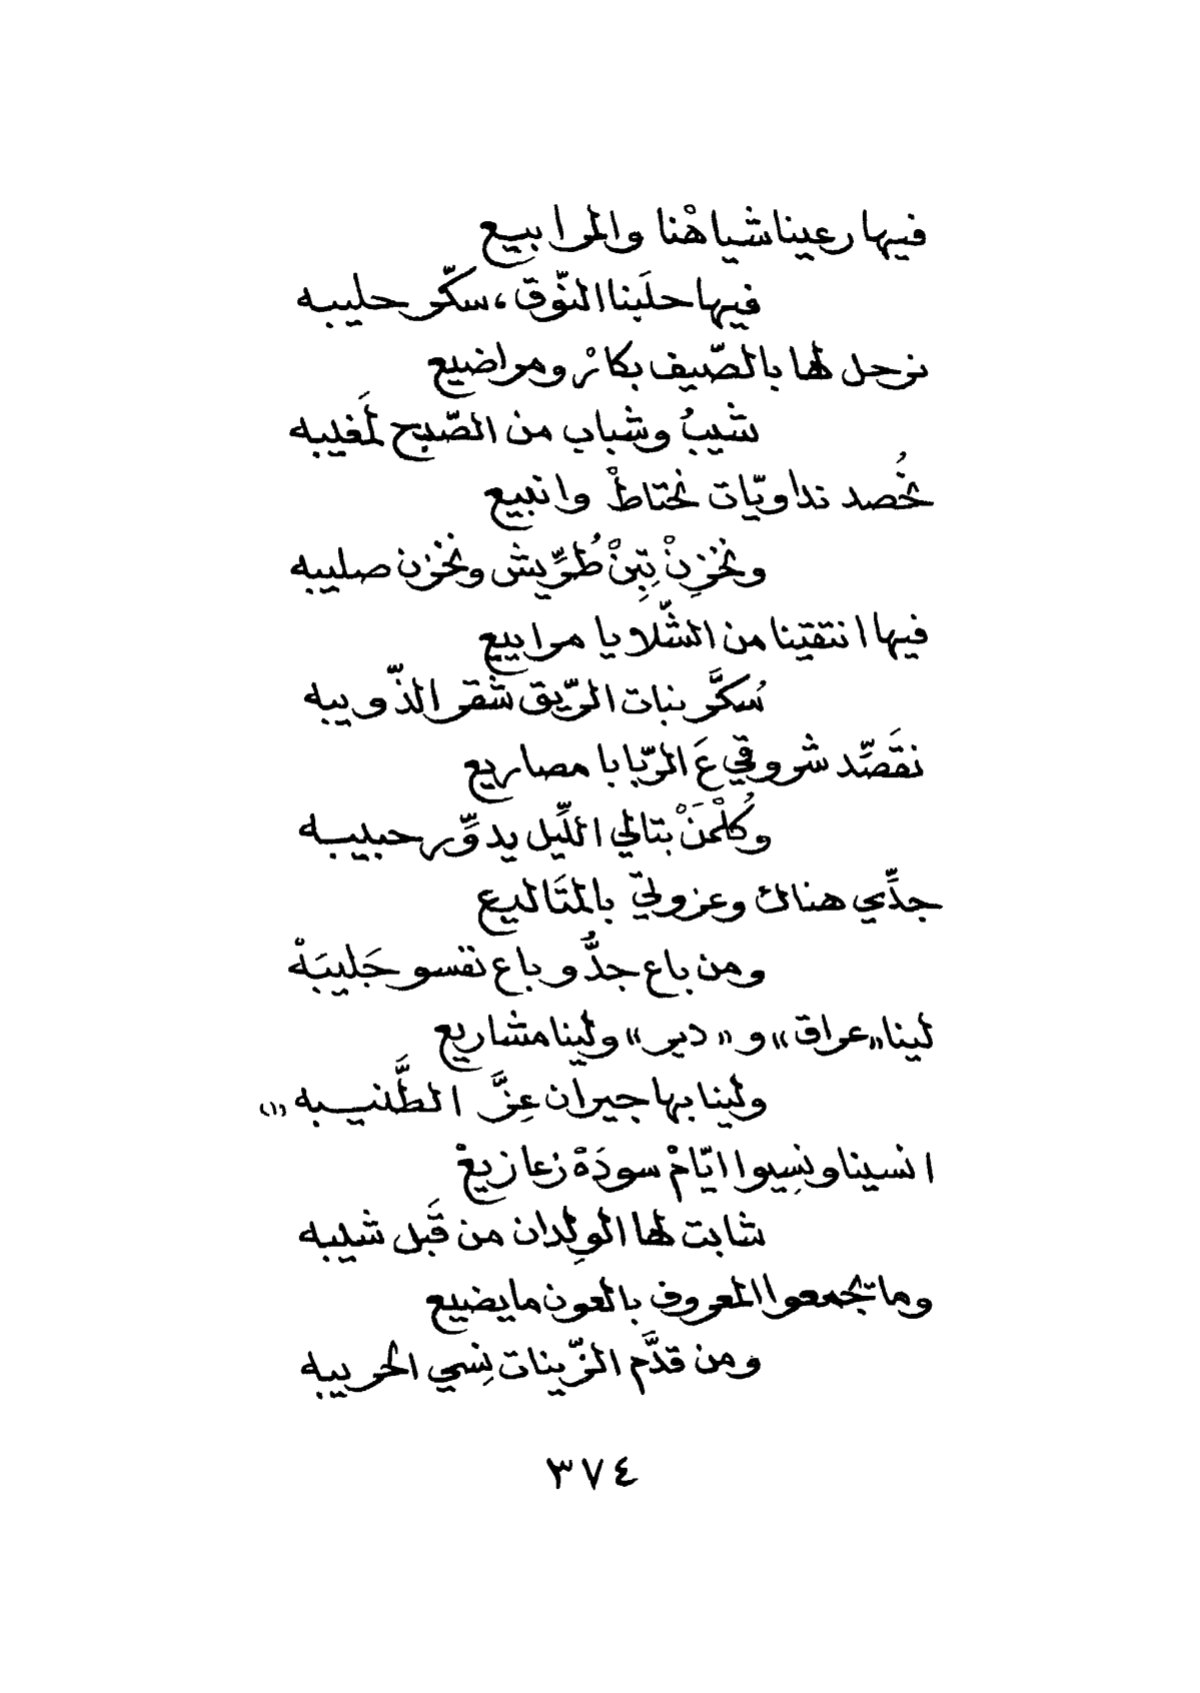 فيها رعينا شياهْنا والمرابيع
فيها حلَبنا النّوق، سكّر حليبه
نرحل لها بالصّيف بكارْ ومراضيع
شيبُ وشباب من الصّبح لمَغيبه
نحُصد نداويّات نحتاطْ وانبيع
ونخزِنْ تِبِنْ طُرِّيش ونخْزن صليبه
فيها انتقينا من الشّلايا مرابيع
سُكَّر بنات الرّيق شقر الذّويبه
نقَصِّد شروقي عَ الرّبابا مصاريع
وكُلْمَنْ بتالي اللّيل يدوِّر حبيبه
جدِّي هناك وعزوليّ بالمتَاليع
ومن باع جدُّو باع نفسو جَليبَةْ
لينا «عراق» و «دير» ولينا مشاريع
ولينا بها جيران عِزَّ الطَّنيبه (١)
انسينا ونِسِيوا ايّامْ سودَةْ زعازيعْ
شابت لها الوِلدان من قَبل شيبه
وما تجمعوا المعروف بالعون ما يضيع
ومن قدَّم الزّينات نِسي الحريبه
٣٧٤